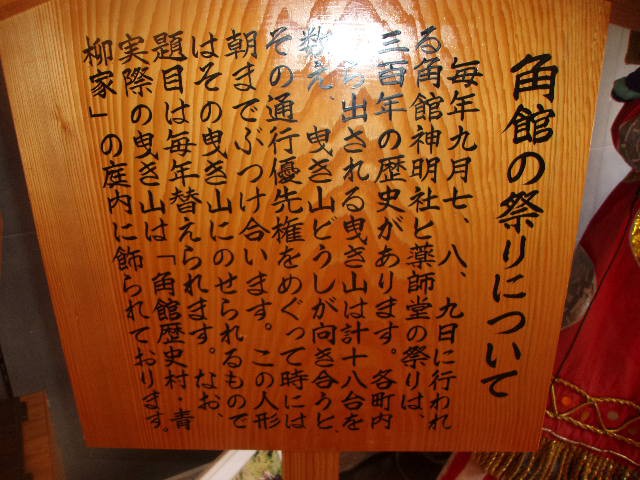 角館の祭りについて
毎年九月七、八、九日に行われ
る角館神明社と薬師堂の祭りは、
三百年の歴史があります。各町内
ら出される曳き山は計十八台を
数え、曳き山どうしが向き合うと、
その通行優先権をめぐって時には
朝までぶつけ合います。この人形
はその曳き山にのせられるもので
題目は毎年替えられます。なお、
実際の曳き山は「角館歴史村・青
柳家」の庭内に飾られております。